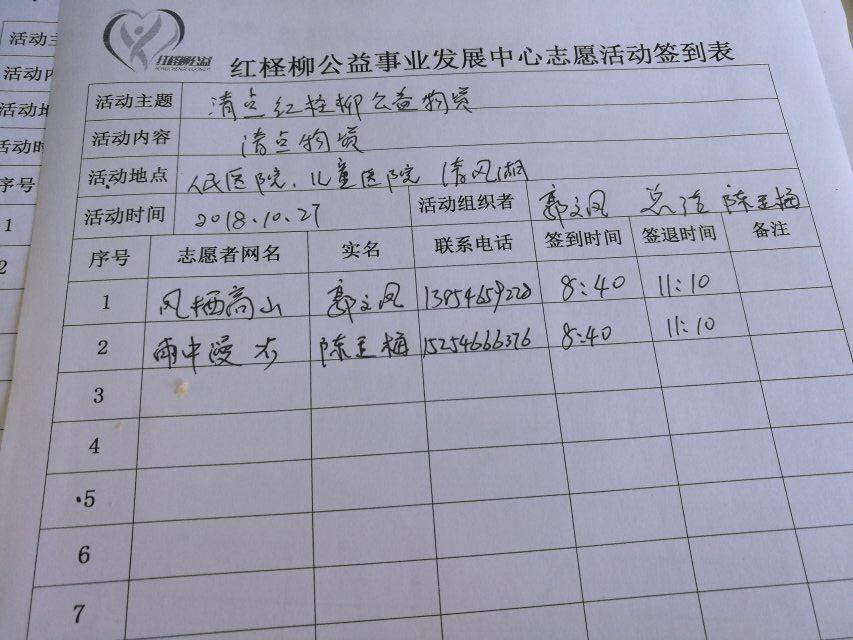 红柽柳公益
红柽柳公益事业发展中心志愿活动签到表
活动主题 清点红柽柳公益物资
活动内容 清点物资
活动地点 人民医院、儿童医院 清风湖
活动时间 2018.10.27 活动组织者 郭文风 陈玉梅
序号 志愿者网名 实名 联系电话 签到时间 签退时间 备注
1 风栖高山 郭文风 13954659220 8:40 11:10
2 雨中漫步 陈玉梅 15254666376 8:40 11:10
3
4
5
6
7
活动
活动内
活动地
活动时
序号
1
2